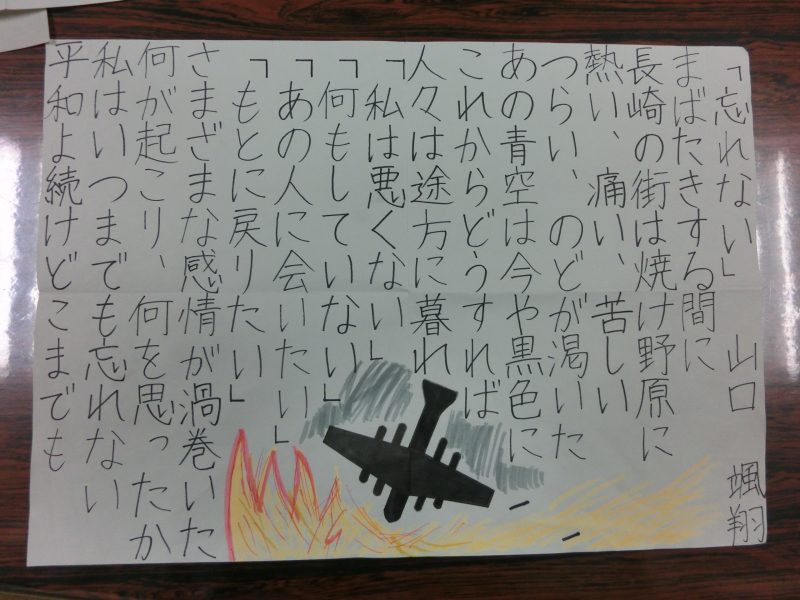 「忘れない」 山口 颯翔
まばたきする間に
長崎の街は焼け野原に
熱い、痛い、苦しい
つらい、のどが渇いた
あの青空は今や黒色に
これからどうすれば
人々は途方に暮れ
「私は悪くない」
「何もしていない」
「あの人に会いたい」
「もとに戻りたい」
さまざまな感情が渦巻いた
何が起こり、何を思ったか
私はいつまでも忘れない
平和よ続けどこまでも